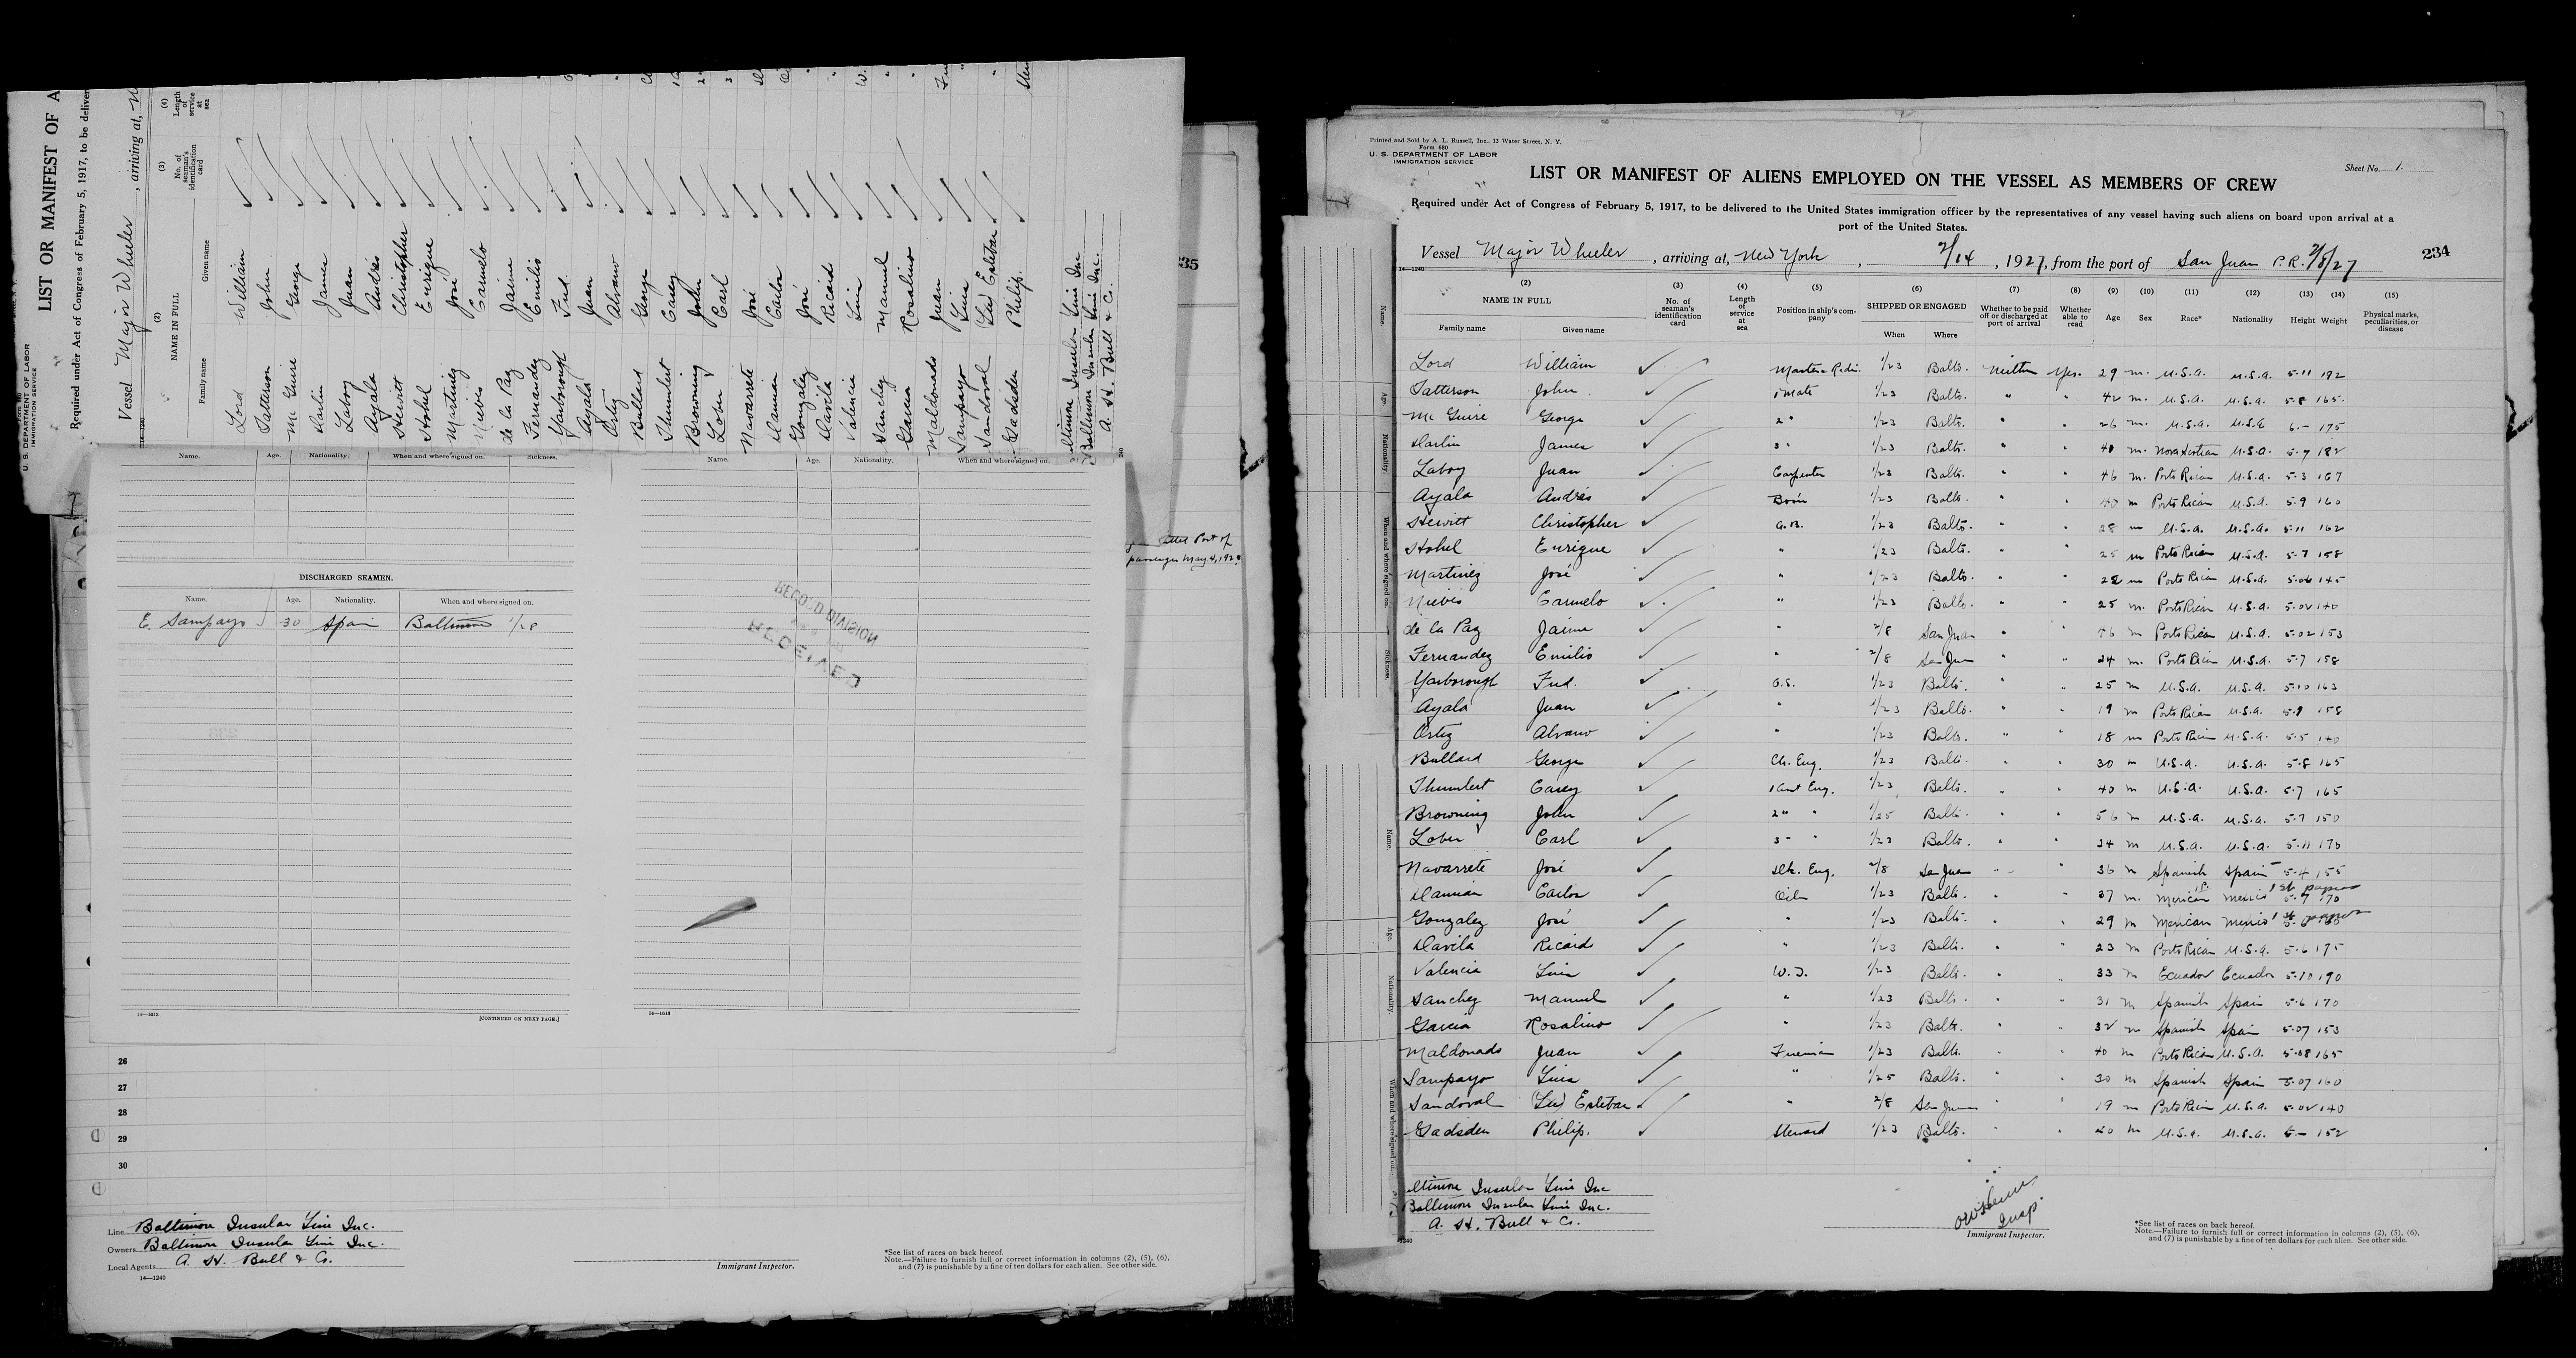 U. S. DEPARTMENT OF LABOR
IMMIGRATION SERVICE
LIST OR MANIFEST OF A
Required under Act of Congress of February 5, 1917, to be deliver
Vessel Major Wheeler , arriving at,
(2) (3) (4)
NAME IN FULL No. of seaman's identification card Length of service at sea
Family name Given name
Lord William
Patterson John
Mc Guire George
Harlin James
Laboy Juan
Ayala Andrés
Hewitt Christopher
Hohel Enrique
Martinez José
Nieves Carmelo
de la Paz Jaime
Fernandez Emilio
Yarborough Fred.
Ayala Juan
Ortiz Alvaro
Bullard George
Thumlert Casey
Browning John
Lober Earl
Navarrete José
Damian Carlos
Gonzalez José
Davila Ricardo
Valencia Luis
Sanchez Manuel
Garcia Rosalino
Maldonado Juan
Sampayo Luis
Sandoval (Lu) Esteban
Gadsden Philip.
ltimore Insular Line Inc
Baltimore Insular Line Inc.
A. H. Bull & Co.
Name. Age. Nationality. When and where signed on. Sickness.
Name. Age. Nationality. When and where signed on.
DISCHARGED SEAMEN.
Name. Age. Nationality. When and where signed on.
E. Sampayo 30 Spain Baltimore 1/28
RECORD DIVISION
RECEIVED
335
Port of
passenger May 4, 192
14—1613 [CONTINUED ON NEXT PAGE.]
14—1613
26
27
28
29
30
Line Baltimore Insular Line Inc.
Owners Baltimore Insular Line Inc.
Local Agents A. H. Bull & Co.
14—1240
Immigrant Inspector.
*See list of races on back hereof.
Note.—Failure to furnish full or correct information in columns (2), (5), (6),
and (7) is punishable by a fine of ten dollars for each alien. See other side.
Printed and Sold by A. L. Russell, Inc., 13 Water Street, N. Y.
Form 680
U. S. DEPARTMENT OF LABOR
IMMIGRATION SERVICE
Sheet No. 1.
LIST OR MANIFEST OF ALIENS EMPLOYED ON THE VESSEL AS MEMBERS OF CREW
Required under Act of Congress of February 5, 1917, to be delivered to the United States immigration officer by the representatives of any vessel having such aliens on board upon arrival at a
port of the United States.
234
Vessel Major Wheeler , arriving at, New York , 2/14 , 1927, from the port of San Juan P.R. 2/8/27
14—1240
(2) (3) (4) (5) (6) (7) (8) (9) (10) (11) (12) (13) (14) (15)
NAME IN FULL No. of seaman's identification card Length of service at sea Position in ship's company SHIPPED OR ENGAGED Whether to be paid off or discharged at port of arrival Whether able to read Age Sex Race* Nationality Height Weight Physical marks, peculiarities, or disease
Family name Given name When Where
Lord William Master 1/23 Balto. Yes. 29 m. U.S.A. U.S.A. 5-11 192
Patterson John 1 Mate 1/23 Balto. " " 42 m. U.S.A. U.S.A. 5-8 165
Mc Guire George 2 " 1/23 Balto. " " 26 m. U.S.A. U.S.A. 6- 175
Harlin James 3 " 1/23 Balto. " " 40 m. Nova Scotian U.S.A. 5-7 182
Laboy Juan Carpenter 1/23 Balto. " " 46 m. Porto Rican U.S.A. 5-3 167
Ayala Andrés Bos'n 1/23 Balto. " " 40 m Porto Rican U.S.A. 5-9 160
Hewitt Christopher A.B. 1/23 Balto. " " 28 m U.S.A. U.S.A. 5-11 162
Hohel Enrique " 1/23 Balto. " " 25 m Porto Rican U.S.A. 5-7 158
Martinez José " 1/23 Balto. " " 28 m Porto Rican U.S.A. 5-06 145
Nieves Carmelo " 1/23 Balto. " " 25 m. Porto Rican U.S.A. 5-02 140
de la Paz Jaime " 2/8 San Juan " " 46 m Porto Rican U.S.A. 5-02 153
Fernandez Emilio " 2/8 San Juan " " 24 m. Porto Rican U.S.A. 5-7 158
Yarborough Fred. O.S. 1/23 Balto. " " 25 m U.S.A. U.S.A. 5-10 163
Ayala Juan " 1/23 Balto. " " 19 m Porto Rican U.S.A. 5-9 158
Ortiz Alvaro " 1/23 Balto. " " 18 m Porto Rican U.S.A. 5-5 140
Bullard George Ch. Eng. 1/23 Balto. " " 30 m U.S.A. U.S.A. 5-8 165
Thumlert Casey 1 Asst Eng. 1/23 Balto. " " 40 m U.S.A. U.S.A. 5-7 165
Browning John 2 " " 1/25 Balto. " " 56 m U.S.A. U.S.A. 5-7 150
Lober Earl 3 " " 1/23 Balto. " " 34 m U.S.A. U.S.A. 5-11 170
Navarrete José Dk. Eng. 2/8 San Juan " " 36 m Spanish Spain 5-4 155
Damian Carlos Oiler 1/23 Balto. " " 37 m. Mexican Mexico 5-7 170 1st papers
Gonzalez José " 1/23 Balto. " " 29 m Mexican Mexico 1st papers
Davila Ricardo " 1/23 Balto. " " 23 m Porto Rican U.S.A. 5-6 175
Valencia Luis W.T. 1/23 Balto. " " 33 m Ecuador Ecuador 5-10 190
Sanchez Manuel " 1/23 Balto. " " 31 m Spanish Spain 5-6 170
Garcia Rosalino " 1/23 Balto. " " 32 m Spanish Spain 5-07 153
Maldonado Juan Fireman 1/23 Balto. " " 40 m Porto Rican U.S.A. 5-08 165
Sampayo Luis " 1/25 Balto. " " 30 m Spanish Spain 5-07 160
Sandoval (Lu) Esteban " 2/8 San Juan " " 19 m Porto Rican U.S.A. 5-02 140
Gadsden Philip. Steward 1/23 Balto. " " m U.S.A. U.S.A. 6- 152
ltimore Insular Line Inc
Baltimore Insular Line Inc.
A. H. Bull & Co.
1240
Insp.
Immigrant Inspector.
*See list of races on back hereof.
Note.—Failure to furnish full or correct information in columns (2), (5), (6),
and (7) is punishable by a fine of ten dollars for each alien. See other side.